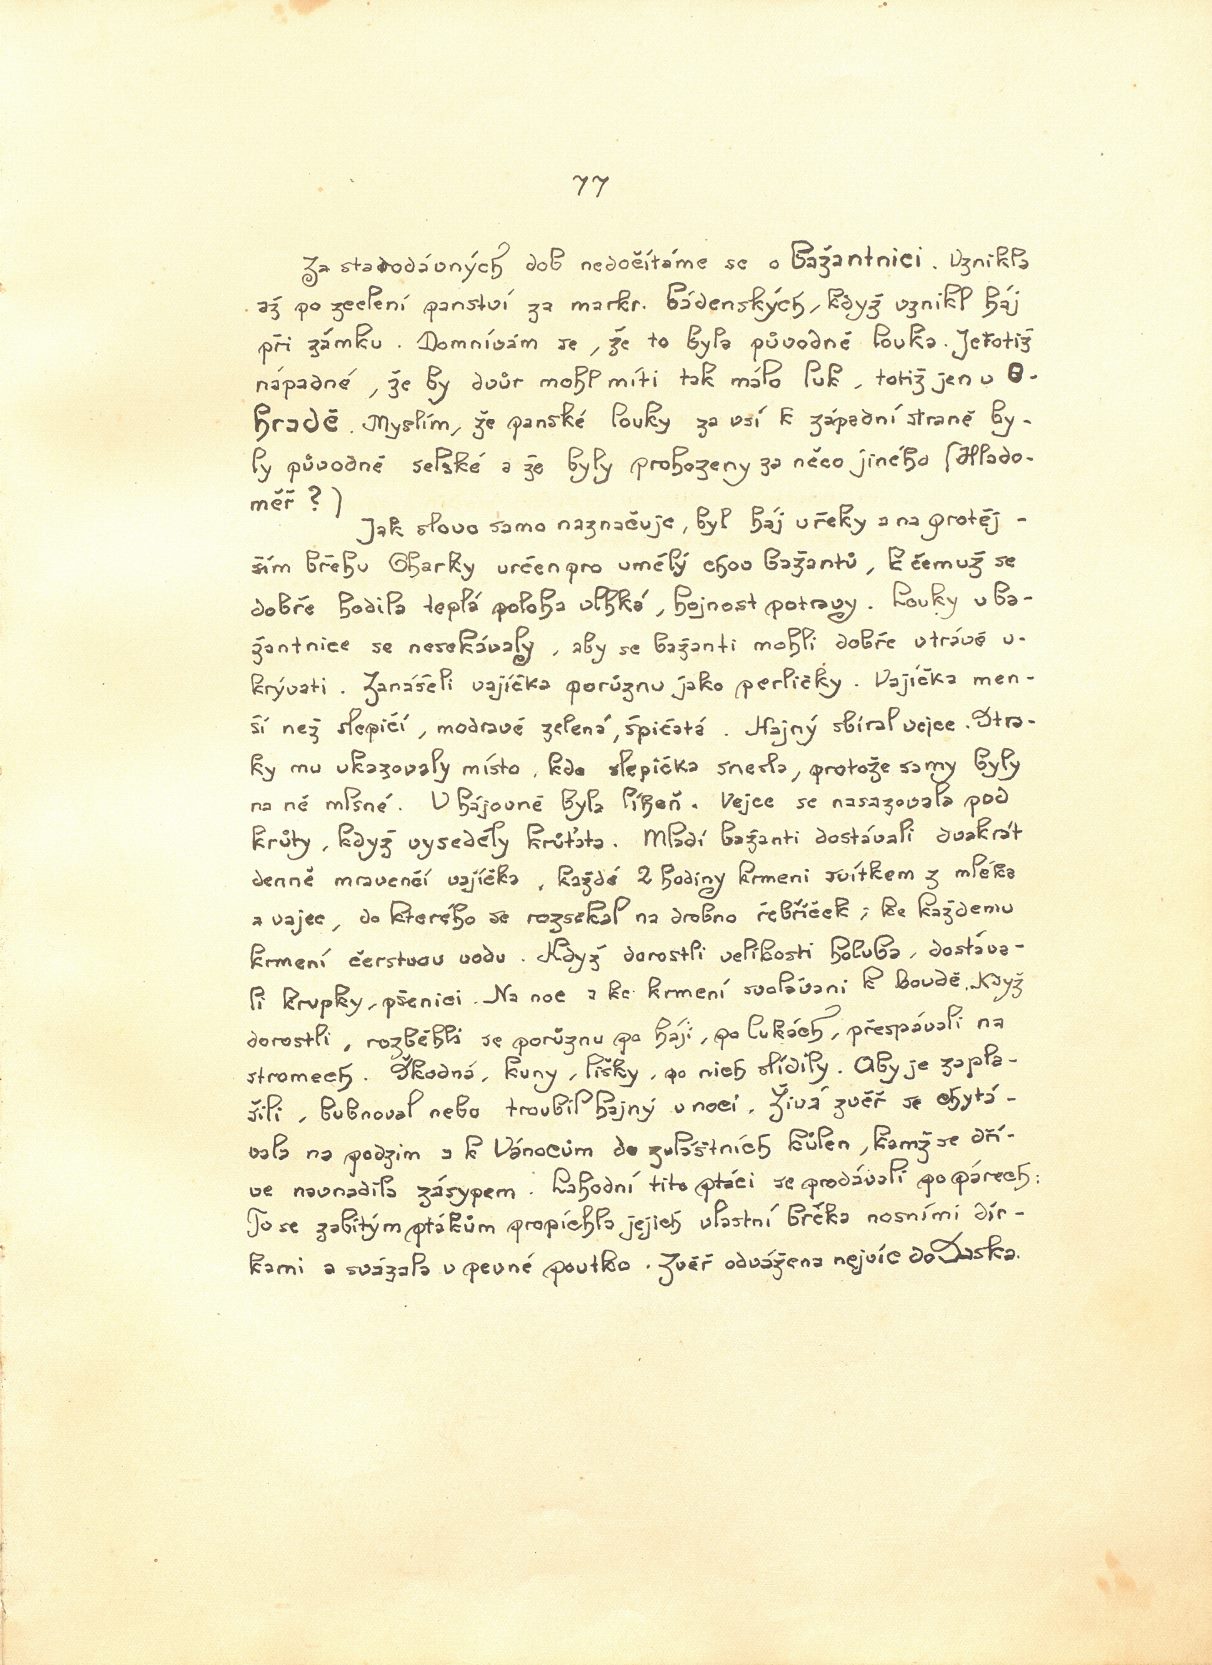 77
Za starodávných dob nedočítáme se o bažantnici. Vznikla
až po zcelení panství za markr. bádenských, když vznikl háj
při zámku. Domnívám se, že to byla původně louka. Jeť totiž
nápadné, že by dvůr mohl míti tak málo luk, totiž jen v O-
hradě. Myslím, že panské louky za vsí k západní straně by-
ly původně selské a že byly prohozeny za něco jiného (Hlado-
měř?)
Jak slovo samo naznačuje, byl háj u řeky a na protěj-
ším břehu Oharky určen pro umělý chov bažantů, k čemuž se
dobře hodila teplá poloha vlhká, hojnost potravy. Louky v ba-
žantnice se nesekávaly, aby se bažanti mohli dobře v trávě u-
krývati. Zanášeli vajíčka porůznu jako perličky. Vajíčka men-
ší než slepičí, modravě zelená, špičatá. Hajný sbíral vejce. Stra-
ky mu ukazovaly místo, kde slepička snesla, protože samy byly
na ně mlsné. V hájovně byla líheň. Vejce se nasazovala pod
krůty, když vyseděly krůťata. Mladí bažanti dostávali dvakrát
denně mravenčí vajíčka, každé 2 hodiny krmeni svítkem z mléka
a vajec, do kterého se rozsekal na drobno řebříček; ke každému
krmení čerstvou vodu. Když dorostli velikosti holuba, dostáva-
li krupky, pšenici. Na noc a ke krmení svoláváni k boudě. Když
dorostli, rozběhli se porůznu po háji, po lukách, přespávali na
stromech. Škodná, kuny, lišky, po nich slídily. Aby je zapla-
šili, bubnoval nebo troubil hajný v noci. Živá zvěř se chytá-
vala na podzim a k Vánocům do zvláštních kůlen, kamž se dří-
ve navnadila zásypem. Lahodní tito ptáci se prodávali po párech:
To se zabitým ptákům propíchla jejich vlastní brčka nosními dír-
kami a svázala v pevné poutko. Zvěř odvážena nejvíc do Saska.